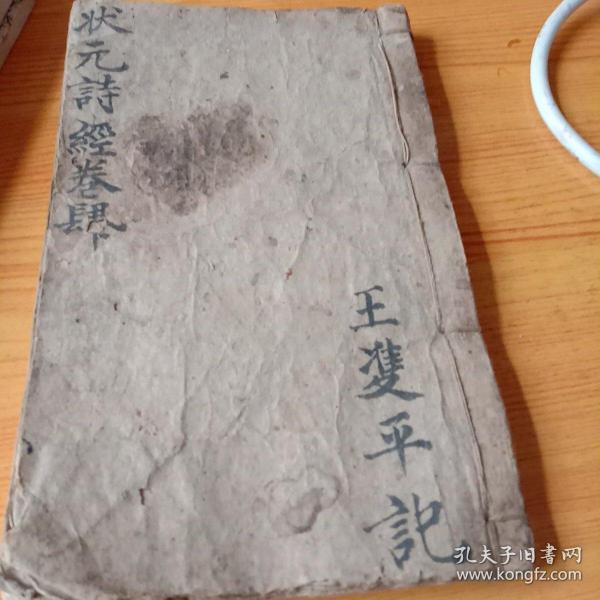 状元詩經卷肆下
王雙平記
孔夫子旧書网
www.kongfz.com